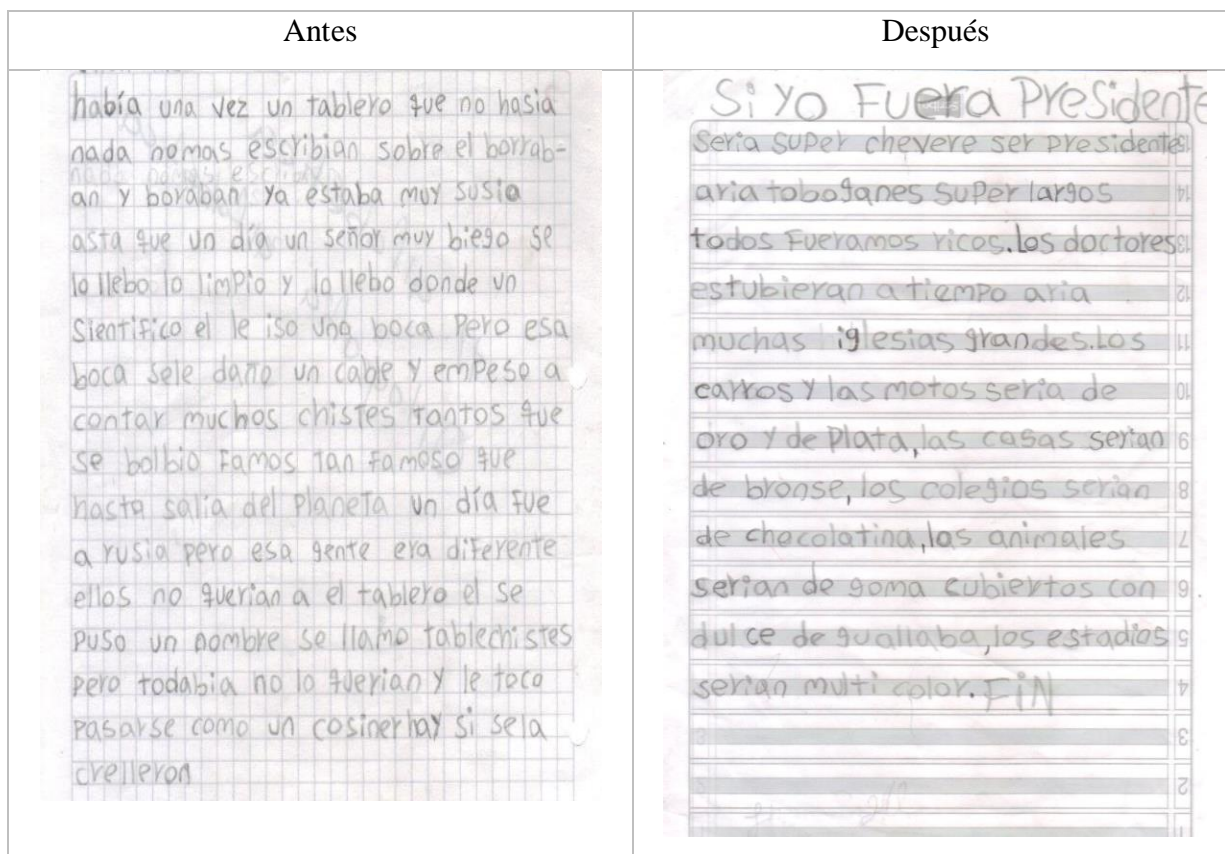 Antes
había una vez un tablero que no hasia
nada nomas escribian sobre el borrab-
an y boraban ya estaba muy susio
asta que un día un señor muy biejo se
lo llebo lo limpio y lo llebo donde un
Sientifico el le iso una boca pero esa
boca sele daño un cable y empeso a
contar muchos chistes tantos que
se bolbio Famos tan Famoso que
hasta salia del planeta un día fue
a rusia pero esa gente era diferente
ellos no querian a el tablero el se
puso un nombre se llamo tablechistes
pero todabia no lo querian y le toco
pasarse como un cosiner hay si sela
crelleron
Después
Si Yo Fuera Presidente
Seria super chevere ser presidente
aria toboganes super largos
todos Fueramos ricos. Los doctores
estubieran a tiempo aria
muchas iglesias grandes. Los
carros y las motos seria de
oro y de Plata, las casas serian
de bronse, los colegios serian
de chocolatina, los animales
serian de goma cubiertos con
dulce de guallaba, los estadios
serian multi color. FiN